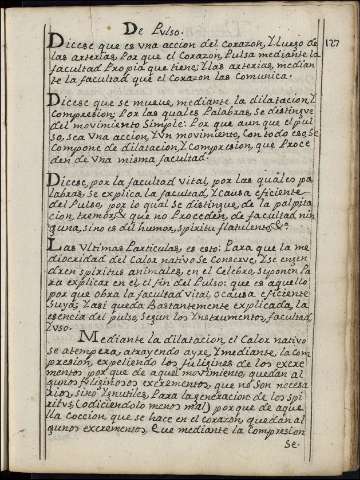 De Pulso.
127
Dicese que es vna accion del corazon, y luego de
las arterias, Por que el corazon Pulsa mediante la
facultad Propia que tiene; y las arterias, median
te la facultad que el Corazon las Comunica.
Dicese que se mueue, mediante la dilatacion, y
Compresion, Por las quales Palabras, Se destingue
del mouimiento Simple: Por que aun que el pul
so, sea Vna accion, y Vn mouimiento, Con todo eso Se
Compone de dilatacion, y Compresion, que Proce
den de Vna misma facultad.
Dicese, por la facultad vital, por las quales pa
labras, Se explica la facultad, y Causa eficiente
del Pulso, por lo qual Se distingue, de la palpita
cion, tremor, & que no Proceden, de facultad nin
guna, sino es del humor, Spiritu flatulento, &ª
Las Vltimas Particulas, es esto: Para que la me
diocridad del Calor natiuo Se Conserue, y Se engen
dren spiritus animales, en el Celebro, Suponen Pa
ra explicar en el fin del Pulso: que es aquello
por que obra la facultad vital, o causa eficiente
Suya, y asi queda Bastantemente explicada, la
esencia del pulso, Segun los ynstrumentos, facultad
y vso.
Mediante la dilatacion, el Calor natiuo
se atempera, atrayendo ayre, y mediante, la com
presion, expeliendo los fuligines de los excre
mentos por que de aquel mouimiento, quedan al
gunos fuliginosos excrementos, que no son necesa
rios, sino ynutiles; Para la generacion de los spi
ritus (o diciendolo menos mal) porque de aque
lla coccion que se hace en el corazon, quedan al
gunos excrementos, Que mediante la Compresion
Se.